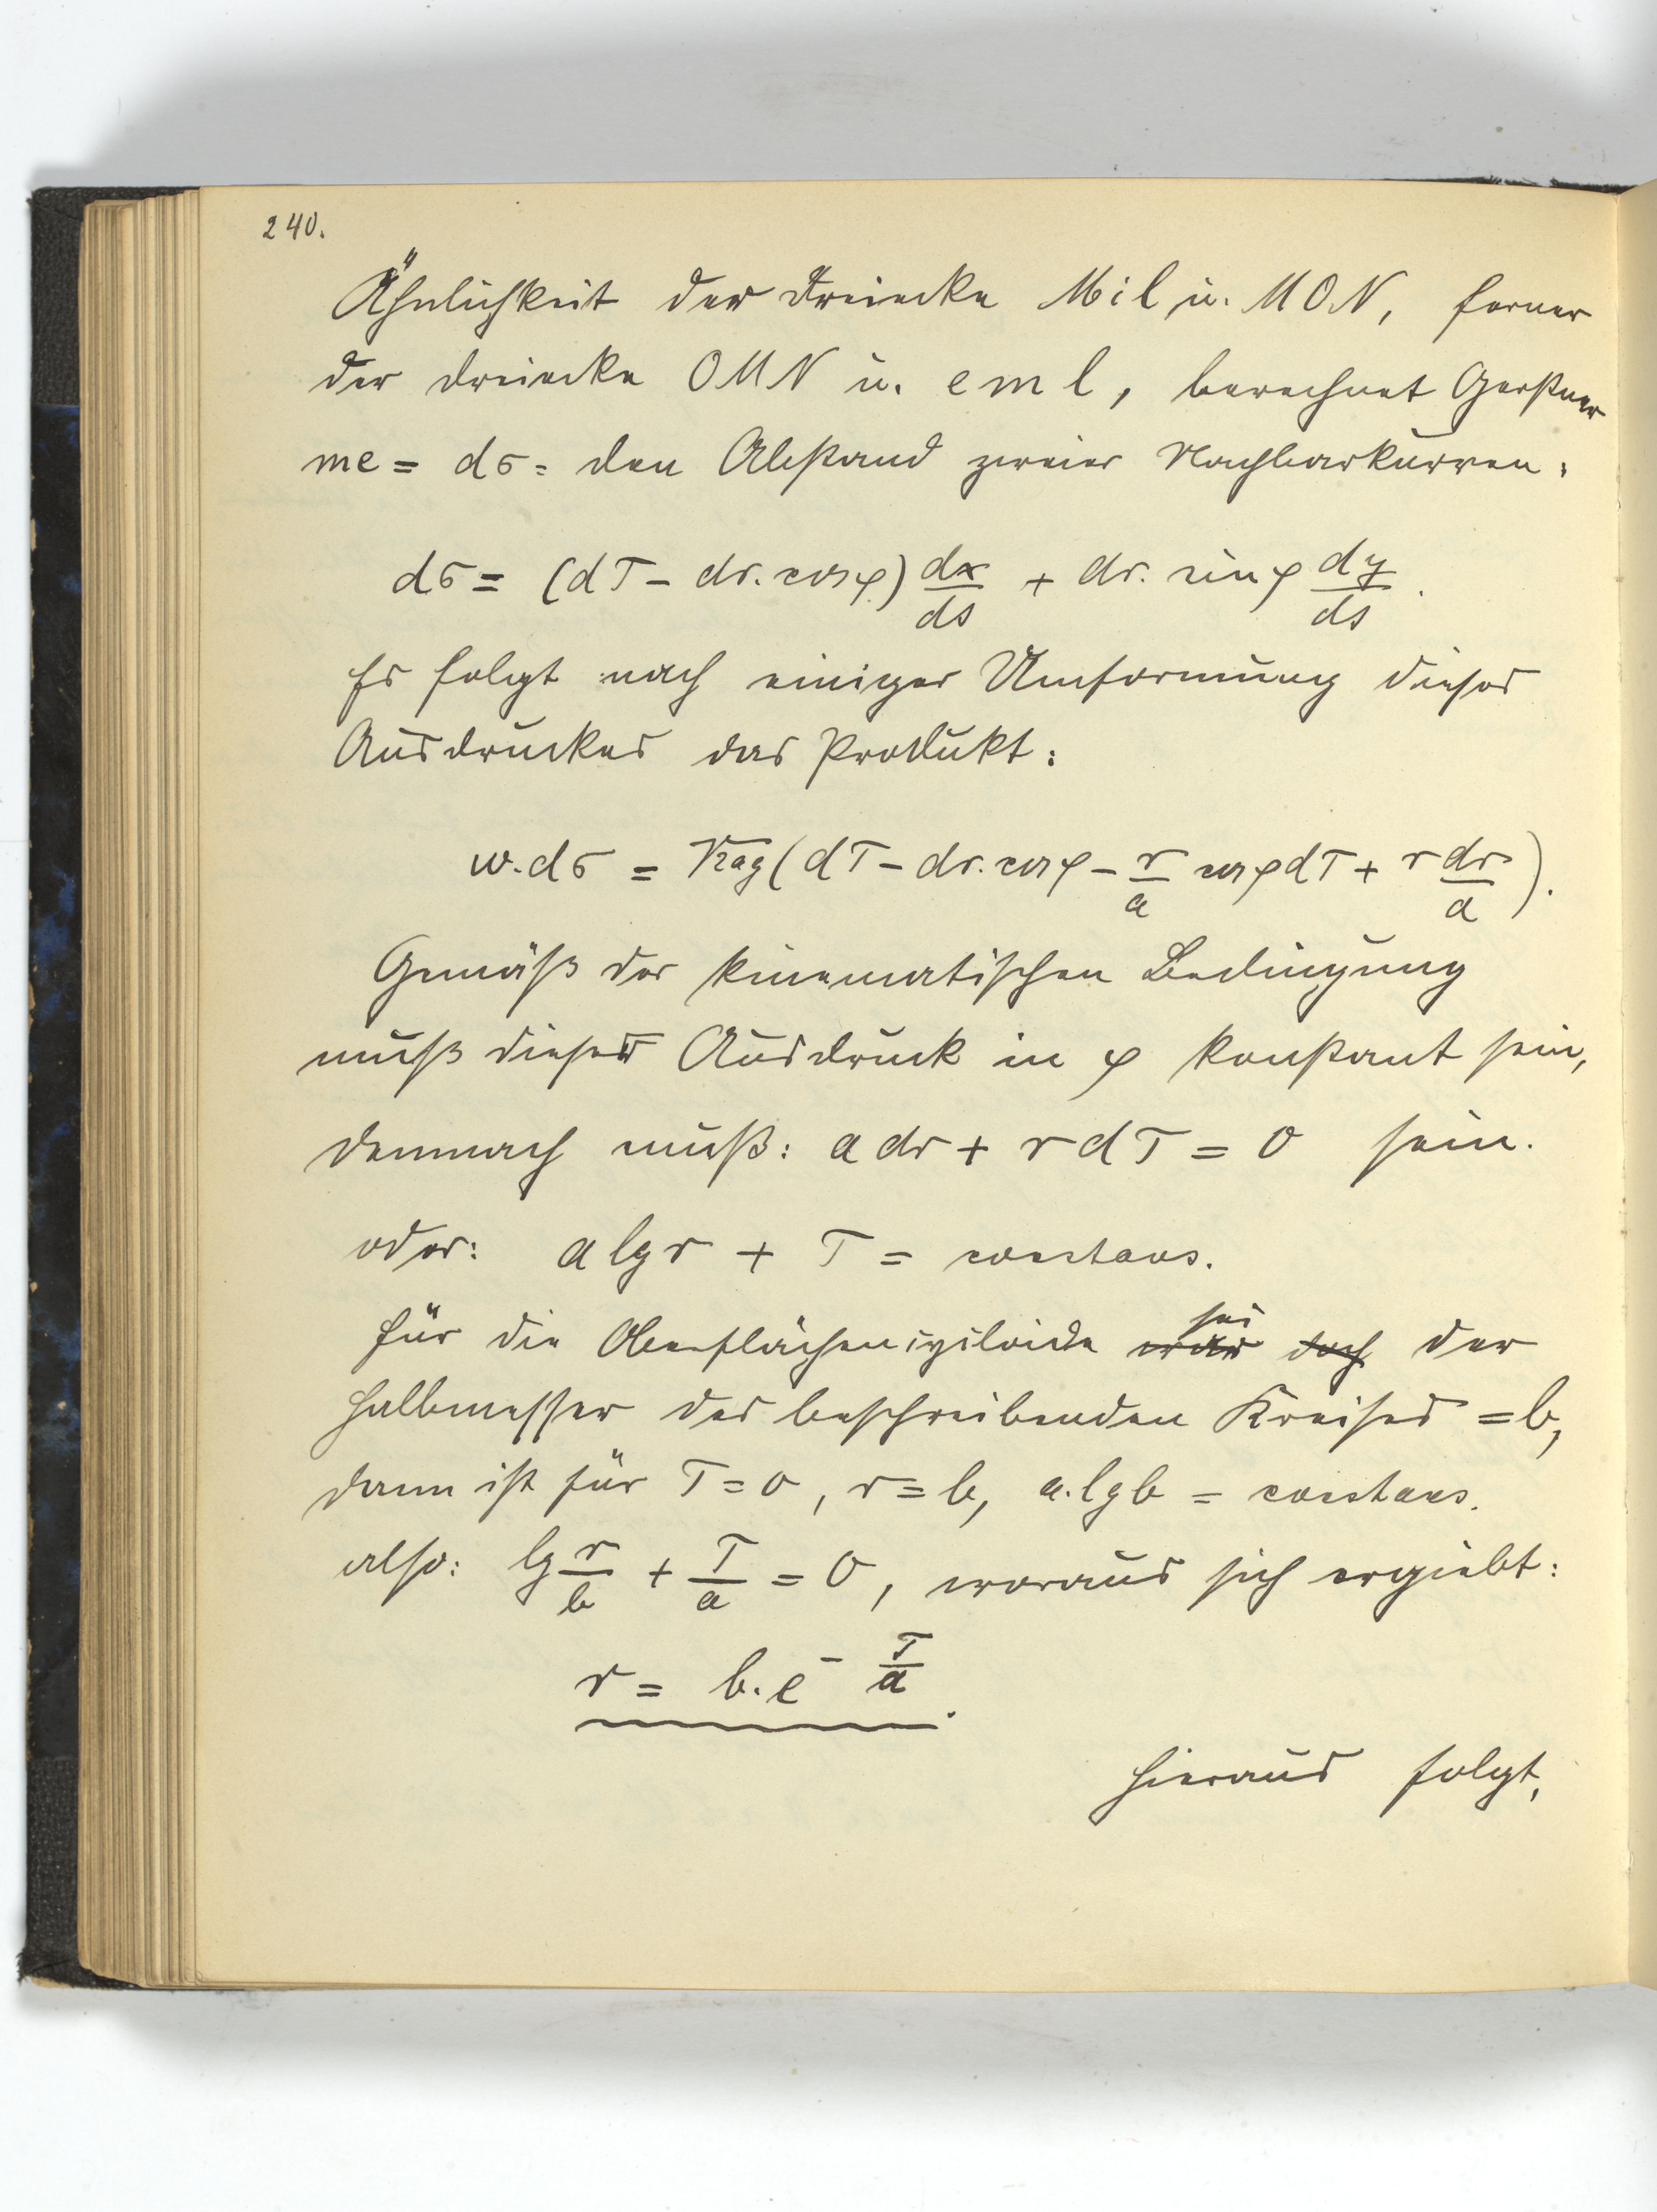 240.
Ähnlichkeit der Dreiecke Mil u. MON, ferner
der Dreiecke OMN u. eml, berechnet Gerstner
me = dσ = den Abstand zweier Nachbarkurven:
dσ = (dT - dr. cosφ) dx/ds + dr. sinφ dy/ds.
Es folgt nach einiger Umformung dieses
Ausdruckes das Produkt:
w.dσ = √2ag (dT - dr. cosφ - r/a cosφ dT + r dr/a).
Gemäß der kinematischen Bedingung
muß dieser Ausdruck in φ konstant sein,
demnach muß: a dr + r dT = 0 sein.
oder: a lg r + T = constans.
Für die Oberflächencycloide sei der
Halbmesser des beschreibenden Kreises = b,
dann ist für T = 0, r = b, a. lg b = constans.
also: lg r/b + T/a = 0, woraus sich ergiebt:
r = b. e^- T/a.
Hieraus folgt,